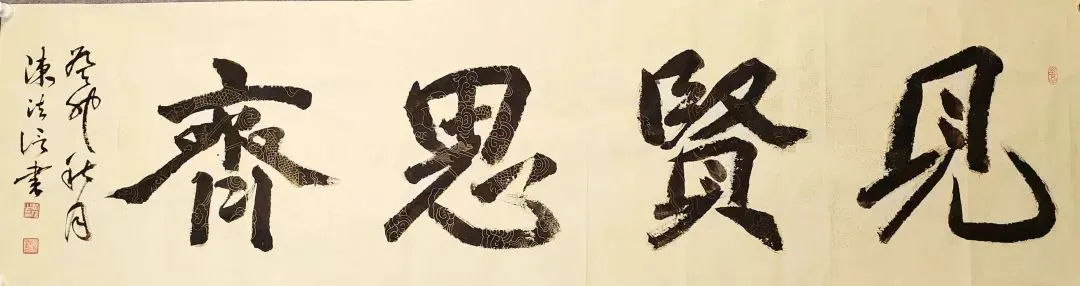 見賢思齊
癸卯秋月
陳法信書